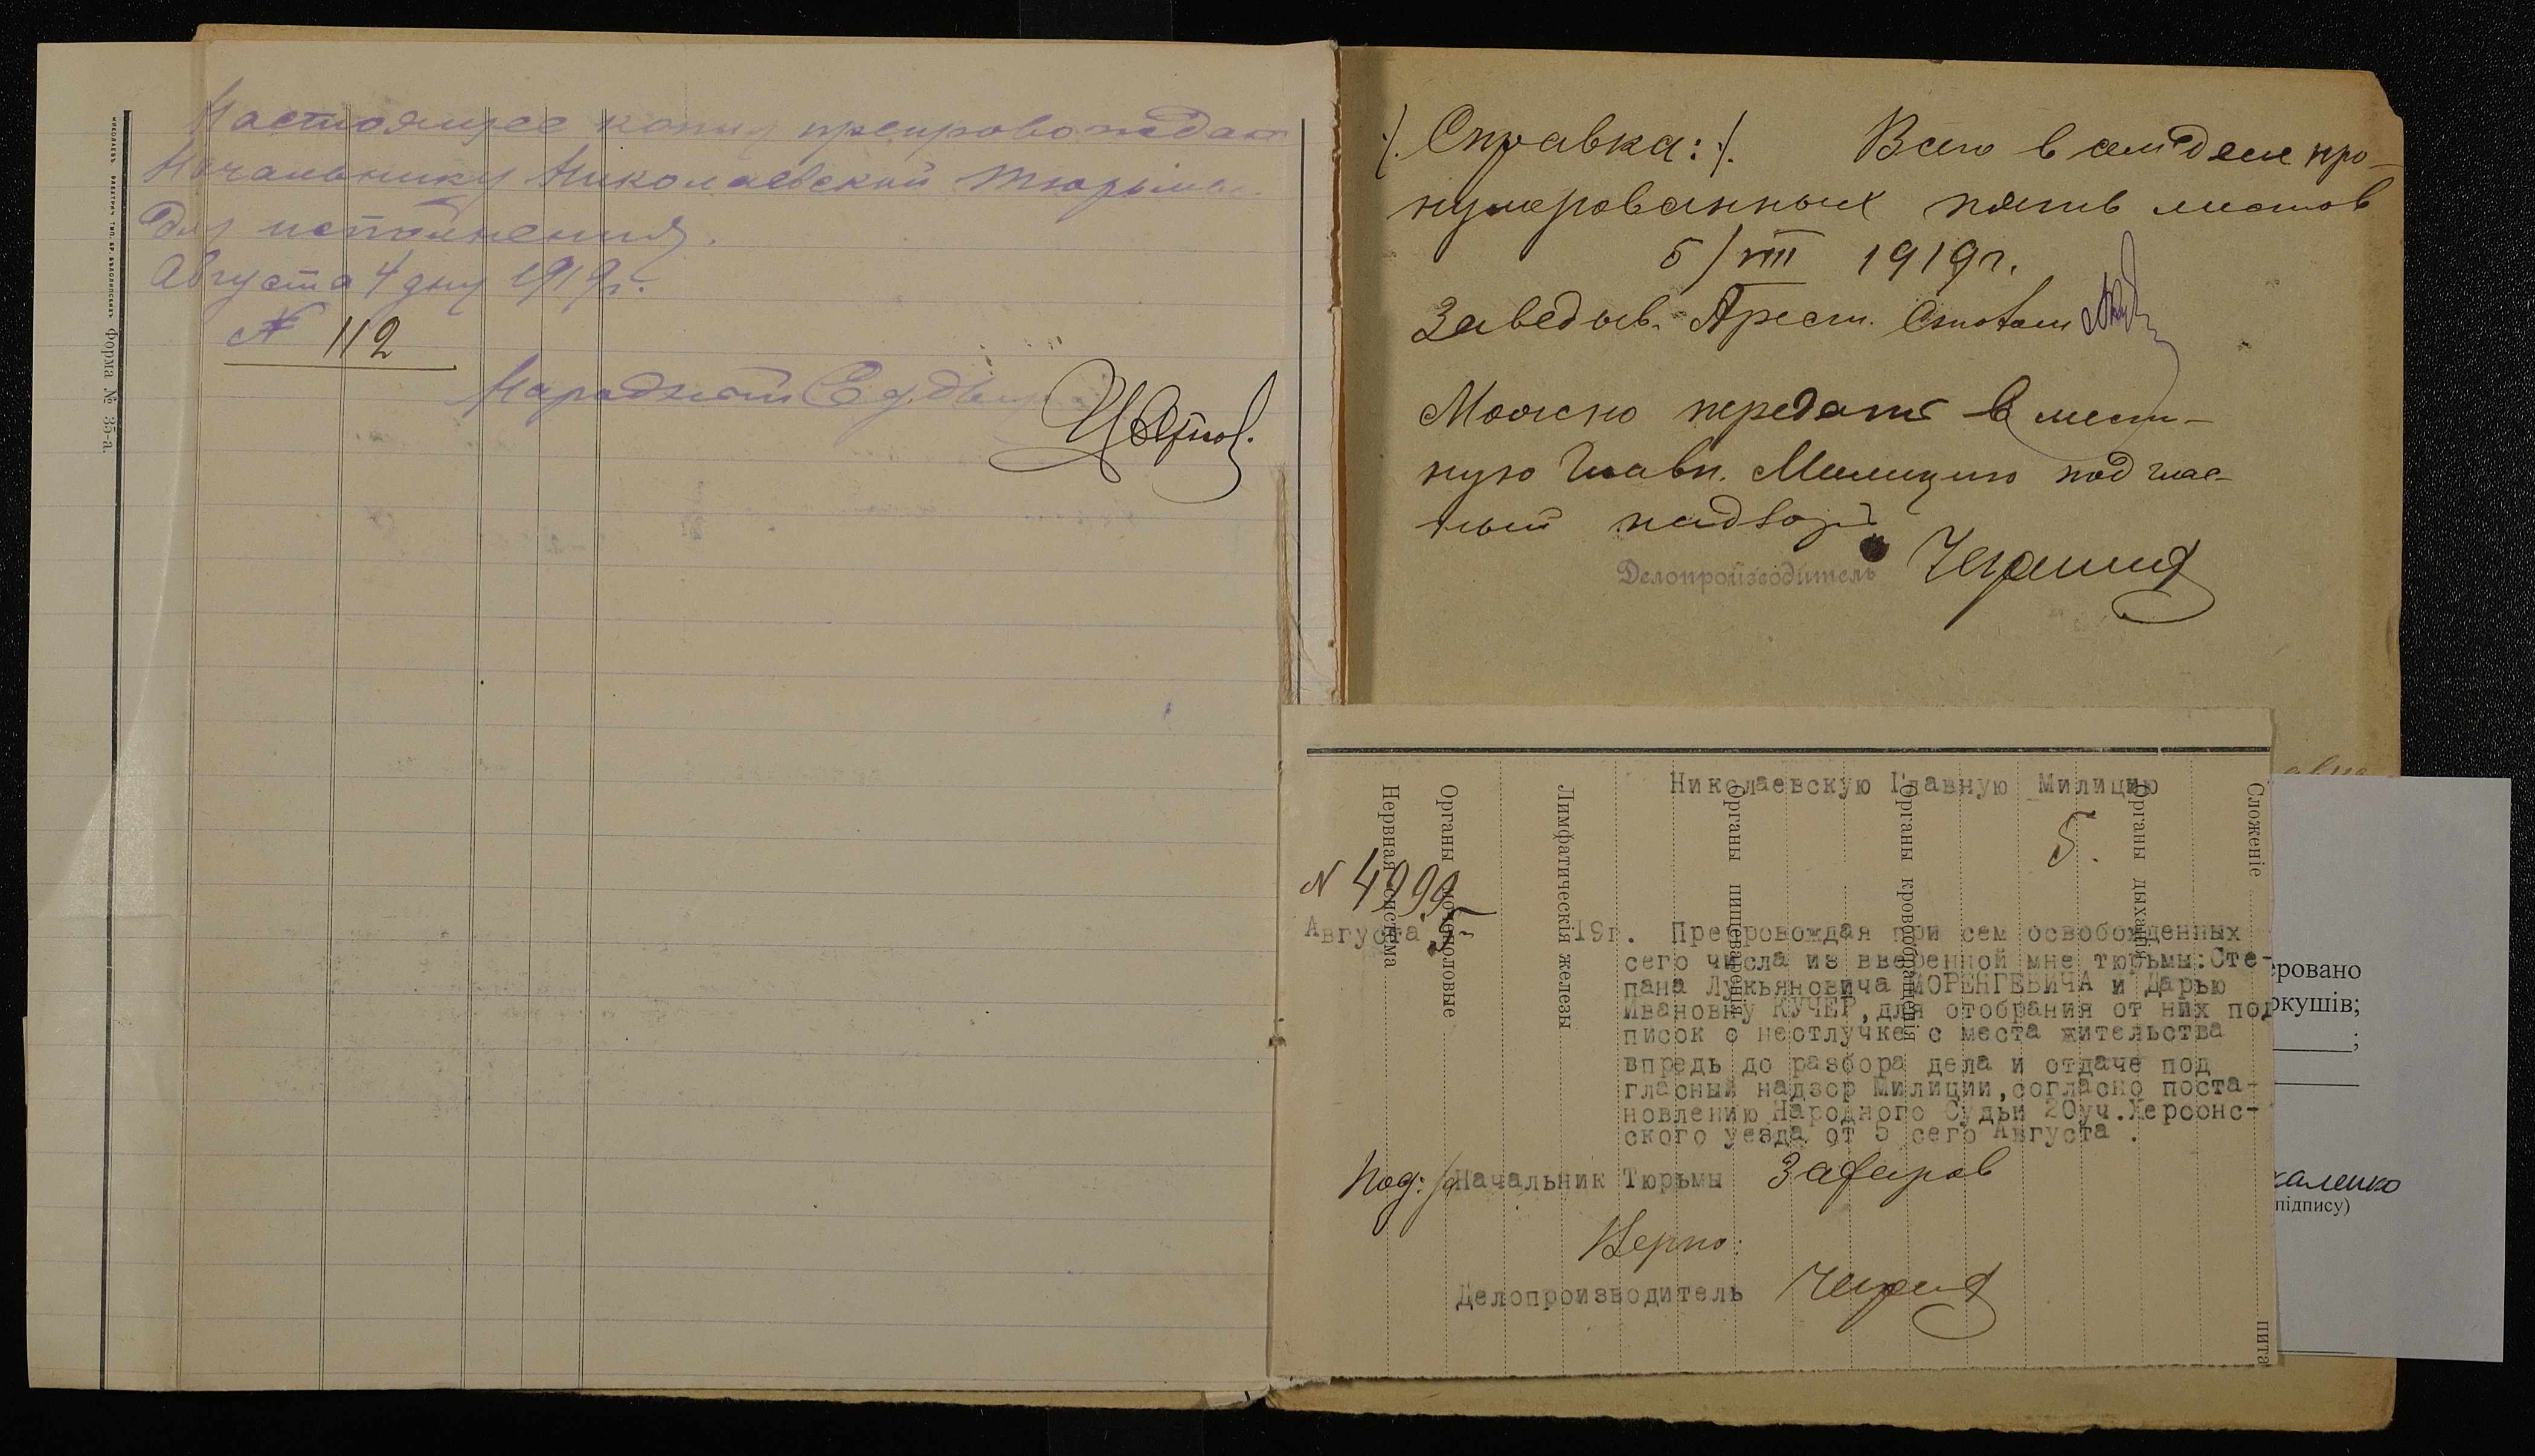 Настоящее копию препровождаю
Начальнику Николаевской Тюрьмы
для исполнения.
Августа 4 дня 1919г.
№ 112
Народный Судья
Форма № 35-а.
Справка: Всего в сем деле про-
нумерованных пять листов
5/VIII 1919г.
Заведыв. Арест. Столом
Можно передать в мест-
ную Главн. Милицию под глас-
ный надзор
Делопроизводитель
Николаевскую Главную Милицию
5.
N 4999
Августа 5 19г. Препровождая при сем освобожденных
сего числа из вверенной мне тюрьмы:Сте-
пана Лукьяновича МОРЕНГЕВИЧА и Дарью
Ивановну КУЧЕР,для отобрания от них под
писок о неотлучке с места жительства
впредь до разбора дела и отдаче под
гласный надзор Милиции,согласно поста-
новлению Народного Судьи 20уч.Херсонс-
ского уезда от 5 сего Августа .
Под: Начальник Тюрьмы Зафиров
Верно:
Делопроизводитель
Нервная система
Органы мочеполовые
Лимфатическія железы
Органы пищеваренія
Органы кровообращенія
Органы дыханія
Сложеніе
пита
еровано
ркушів;
;
каленко
підпису)